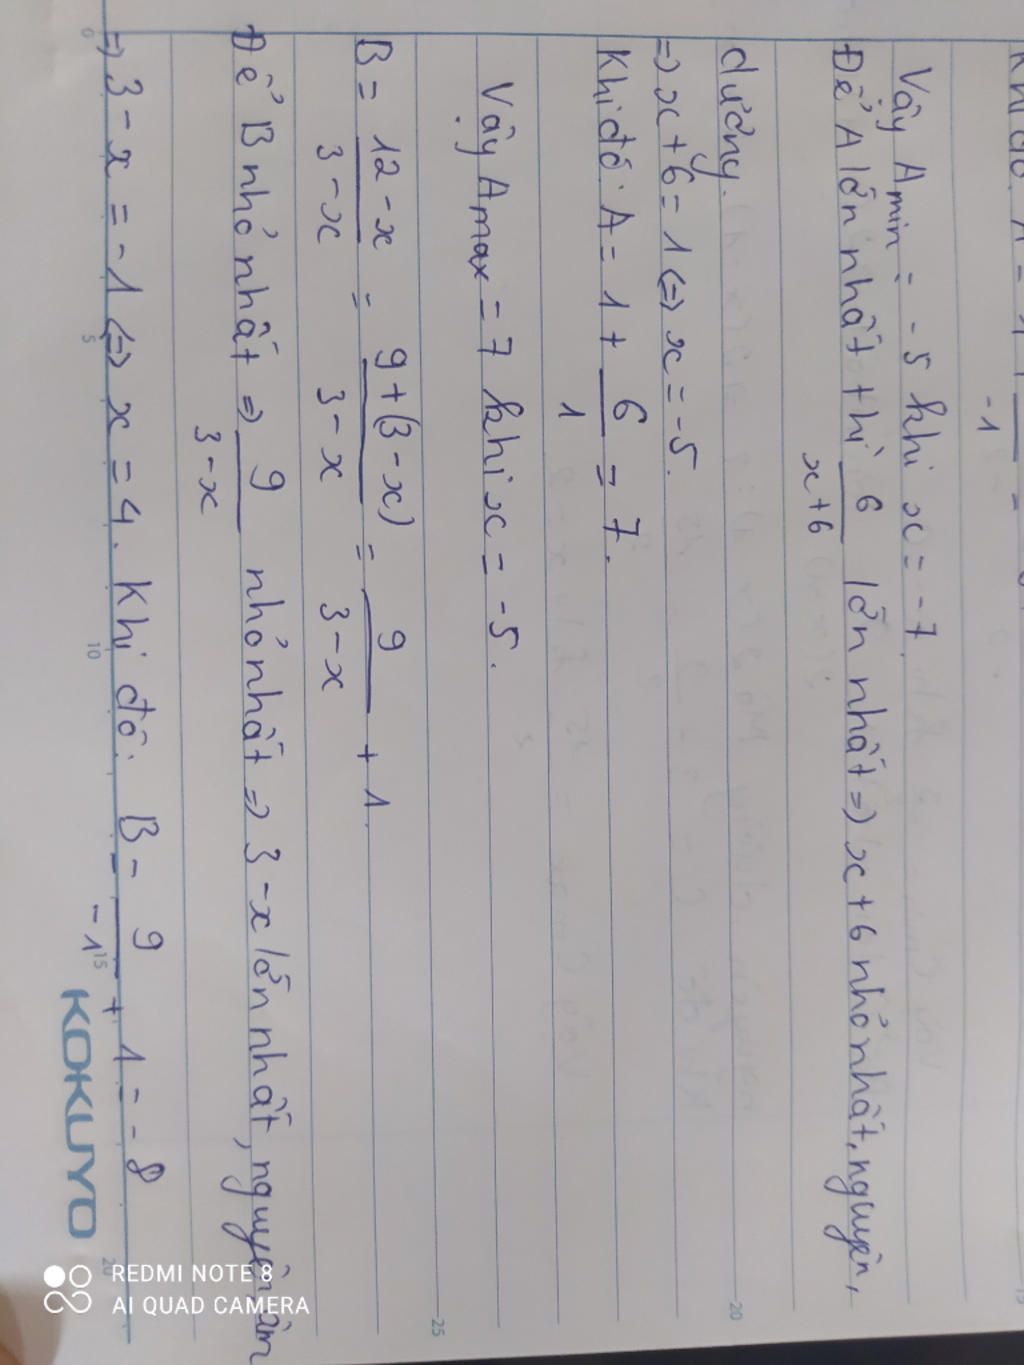 Khi đó: A = 1 +
-1
Vậy Amin = -5 khi x = -7.
Để A lớn nhất thì 6/(x+6) lớn nhất => x+6 nhỏ nhất, nguyên,
dương.
=> x+6 = 1 <=> x = -5.
Khi đó: A = 1 + 6/1 = 7.
Vậy Amax = 7 khi x = -5.
B = (12-x)/(3-x) = (9+(3-x))/(3-x) = 9/(3-x) + 1.
Để B nhỏ nhất => 9/(3-x) nhỏ nhất => 3-x lớn nhất, nguyên, âm
=> 3-x = -1 <=> x = 4. Khi đó: B = 9/-1 + 1 = -8
0 5 10 15 20
20
25
KOKUYO
REDMI NOTE 8
AI QUAD CAMERA